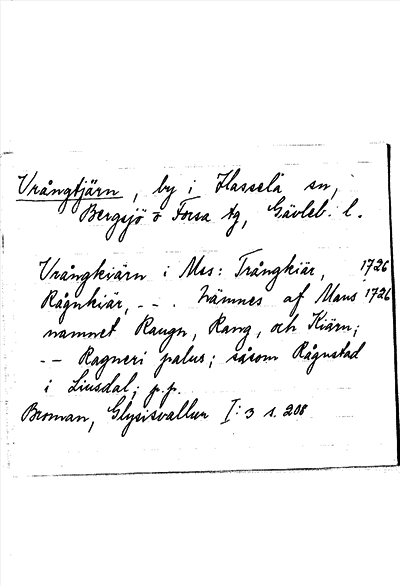 Vrångtjärn, by i Hassela sn,
Bergsjö o Forsa tg, Gävleb. l.
Vrångkiärn i Mss: Trångkiär, 1726
Rågnkiär, -- . nämnes af Mans 1726
namnet Raugn, Rang, och Kiärn;
-- Ragneri palus; såsom Rågnstad
i Liusdal; p.p.
Broman, Glysisvallur I: 3 s. 208